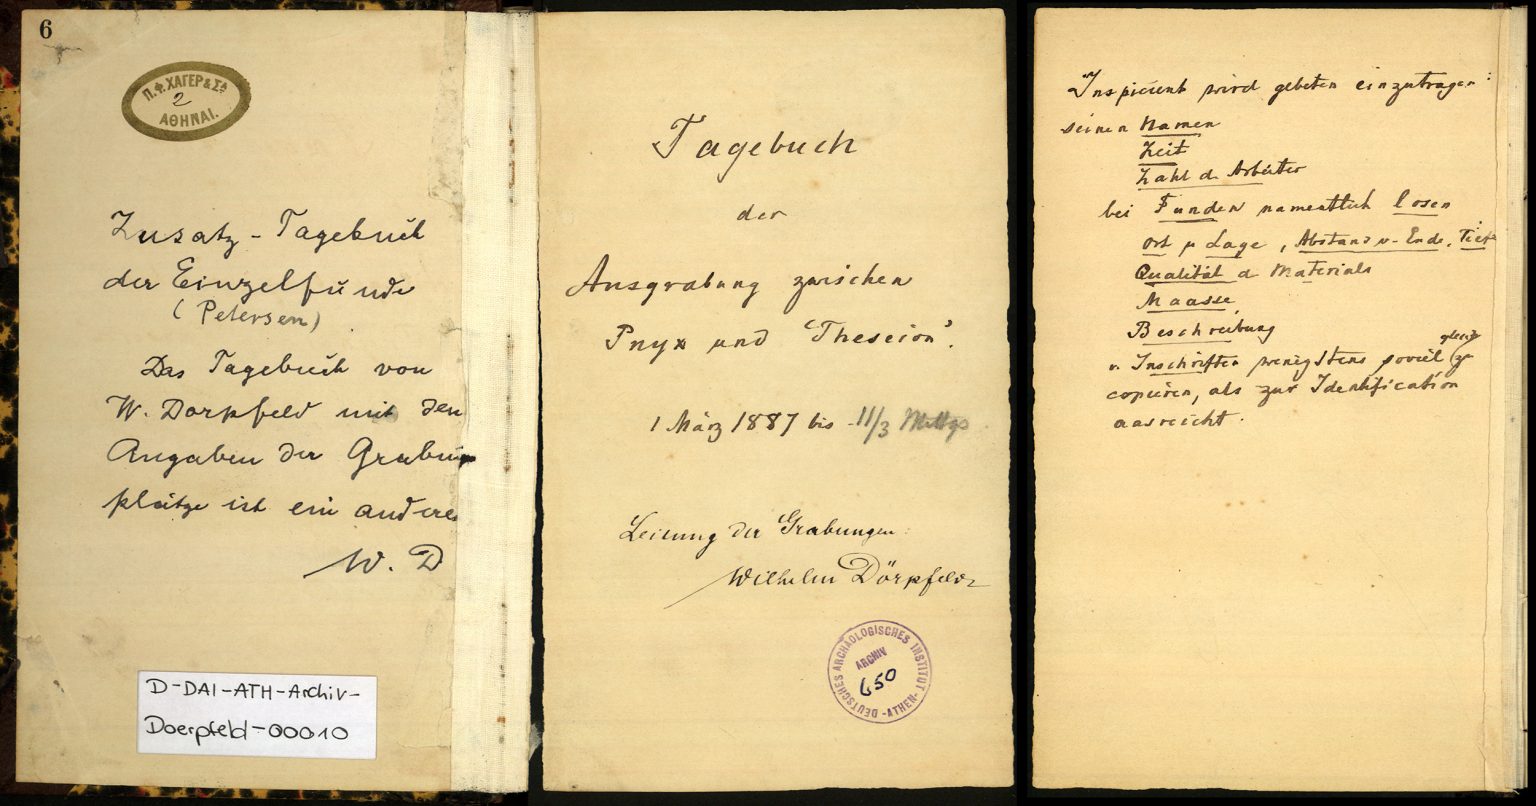 6
Π.Φ.ΧΑΓΕΡ & Σα
2
ΑΘΗΝΑΙ.
Zusatz-Tagebuch
der Einzelfunde
(Petersen)
Das Tagebuch von
W. Dörpfeld mit den
Angaben der Grabungs
plätze ist ein anderes
W. D
D-DAI-ATH-Archiv-
Doerpfeld-00010
Tagebuch
der
Ausgrabung zwischen
Pnyx und 'Theseion'.
1 März 1887 bis 11/3 Mittgs
Leitung der Grabungen:
Wilhelm Dörpfeld
DEUTSCHES ARCHÄOLOGISCHES INSTITUT -ATHEN-
ARCHIV
650
Inspicient wird gebeten einzutragen:
seinen Namen
Zeit
Zahl d. Arbeiter
bei Funden namentlich losen
Ort u Lage, Abstand v. Ende, Tiefe
Qualität d Materials
Maasse,
Beschreibung
v. Inschriften wenigstens soviel gleich zu
copieren, als zur Identification
ausreicht.